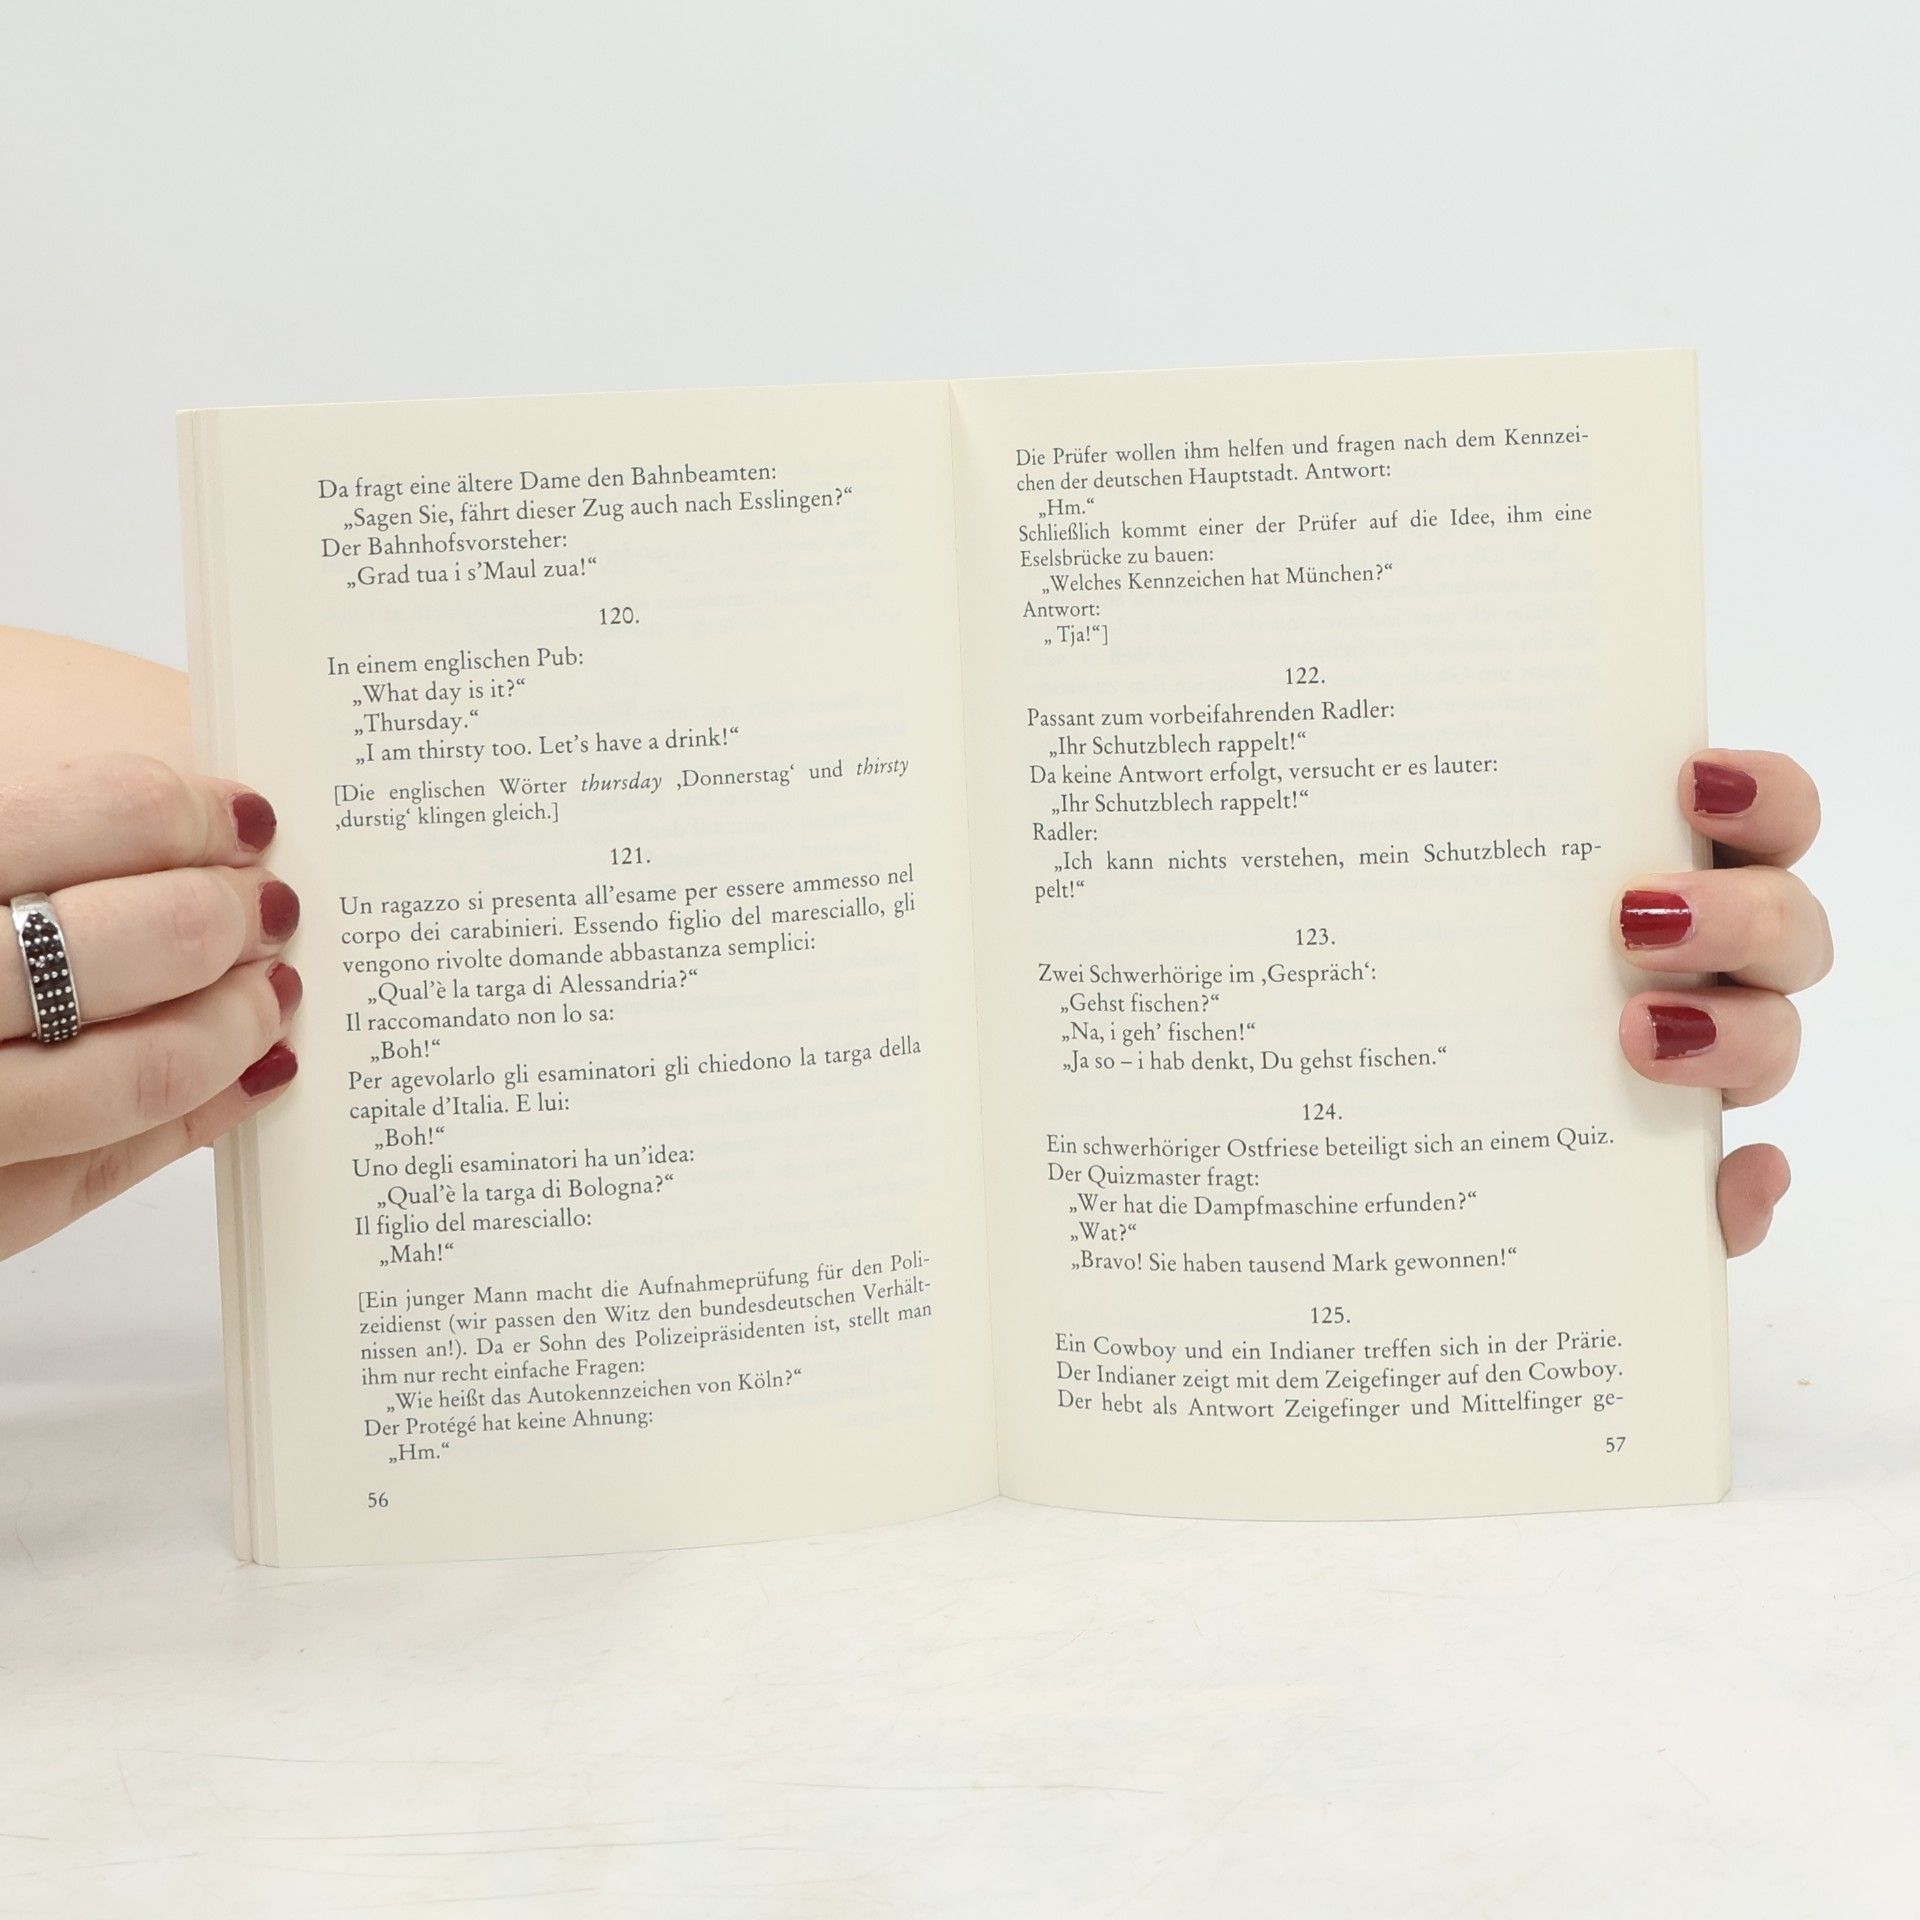 Da fragt eine ältere Dame den Bahnbeamten:
„Sagen Sie, fährt dieser Zug auch nach Esslingen?“
Der Bahnhofsvorsteher:
„Grad tua i s’Maul zua!“
120.
In einem englischen Pub:
„What day is it?“
„Thursday.“
„I am thirsty too. Let’s have a drink!“
[Die englischen Wörter thursday ‚Donnerstag‘ und thirsty
‚durstig‘ klingen gleich.]
121.
Un ragazzo si presenta all’esame per essere ammesso nel
corpo dei carabinieri. Essendo figlio del maresciallo, gli
vengono rivolte domande abbastanza semplici:
„Qual’è la targa di Alessandria?“
Il raccomandato non lo sa:
„Boh!“
Per agevolarlo gli esaminatori gli chiedono la targa della
capitale d’Italia. E lui:
„Boh!“
Uno degli esaminatori ha un’idea:
„Qual’è la targa di Bologna?“
Il figlio del maresciallo:
„Mah!“
[Ein junger Mann macht die Aufnahmeprüfung für den Poli-
zeidienst (wir passen den Witz den bundesdeutschen Verhält-
nissen an!). Da er Sohn des Polizeipräsidenten ist, stellt man
ihm nur recht einfache Fragen:
„Wie heißt das Autokennzeichen von Köln?“
Der Protégé hat keine Ahnung:
„Hm.“
56
Die Prüfer wollen ihm helfen und fragen nach dem Kennzei-
chen der deutschen Hauptstadt. Antwort:
„Hm.“
Schließlich kommt einer der Prüfer auf die Idee, ihm eine
Eselsbrücke zu bauen:
„Welches Kennzeichen hat München?“
Antwort:
„ Tja!“]
122.
Passant zum vorbeifahrenden Radler:
„Ihr Schutzblech rappelt!“
Da keine Antwort erfolgt, versucht er es lauter:
„Ihr Schutzblech rappelt!“
Radler:
„Ich kann nichts verstehen, mein Schutzblech rap-
pelt!“
123.
Zwei Schwerhörige im ‚Gespräch‘:
„Gehst fischen?“
„Na, i geh’ fischen!“
„Ja so – i hab denkt, Du gehst fischen.“
124.
Ein schwerhöriger Ostfriese beteiligt sich an einem Quiz.
Der Quizmaster fragt:
„Wer hat die Dampfmaschine erfunden?“
„Wat?“
„Bravo! Sie haben tausend Mark gewonnen!“
125.
Ein Cowboy und ein Indianer treffen sich in der Prärie.
Der Indianer zeigt mit dem Zeigefinger auf den Cowboy.
Der hebt als Antwort Zeigefinger und Mittelfinger ge-
57